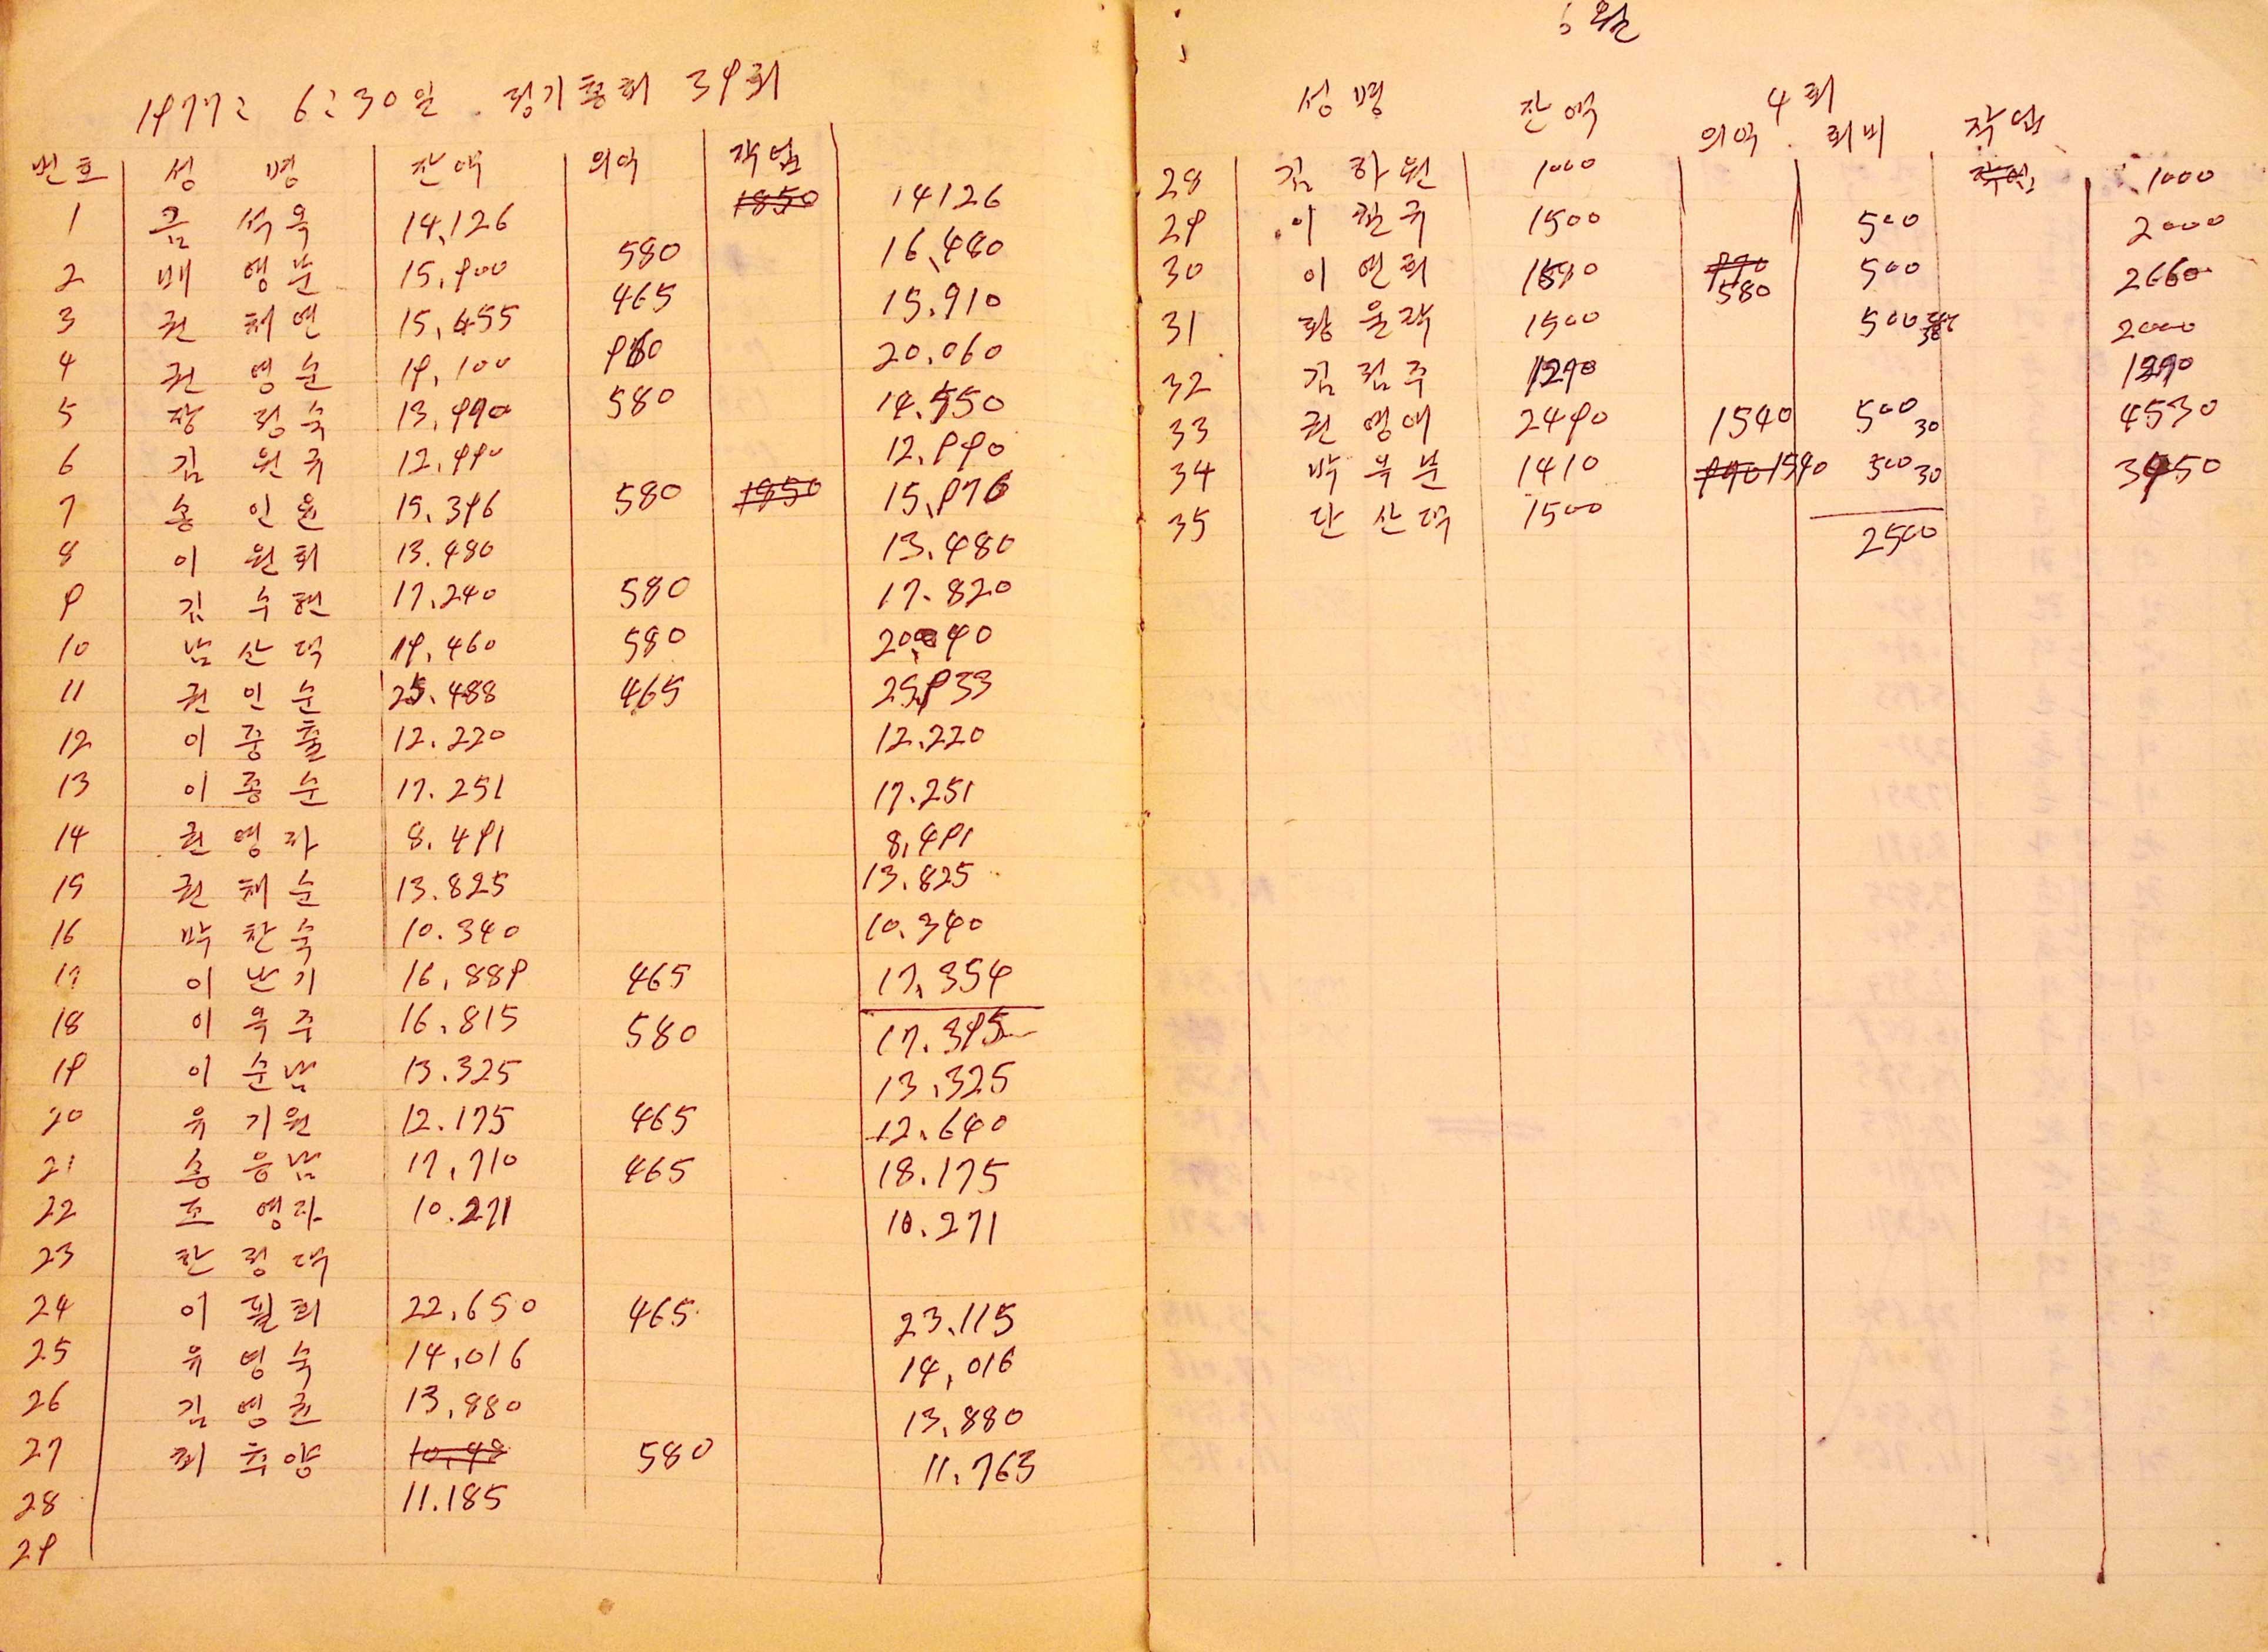 1977: 6:30일. 정기총회 39회
번호 성 명 잔액 의약 작업
1 금석옥 14,126 1850 14126
2 배영순 15,900 580 16,480
3 권채연 15,455 465 15.910
4 권영순 19,100 960 20.060
5 장정숙 13,990 580 14.550
6 김원규 12,990 12.990
7 송인윤 15,396 580 1850 15,976
8 이원희 13.480 13.480
9 김수현 17.240 580 17.820
10 남산댁 19,460 580 20,040
11 권인순 25.488 465 25,933
12 이중출 12.220 12.220
13 이종순 17.251 17.251
14 권영자 8.491 8,491
15 권채순 13.825 13.825
16 박찬숙 10.340 10.340
17 이난기 16,889 465 17,354
18 이옥주 16,815 580 17.395
19 이순남 13.325 13,325
20 유기원 12.175 465 12.640
21 송응남 17,710 465 18.175
22 조영자 10.271 10.271
23 찬정댁
24 이필희 22,650 465 23.115
25 유영숙 14,016 14,016
26 김영권 13,880 13,880
27 최추양 10,48 580 11,763
28 11.185
29
6월
4회
성명 잔액 의약 회비 작업
28 김하원 1000 작업 1000
29 이진규 1500 500 2000
30 이연희 1590 580 500 2660
31 황윤작 1500 500 2000
32 김점주 1290 1290
33 권영애 2490 1540 500 30 4530
34 박옥분 1410 990 1540 500 30 3450
35 단산댁 1500
2500